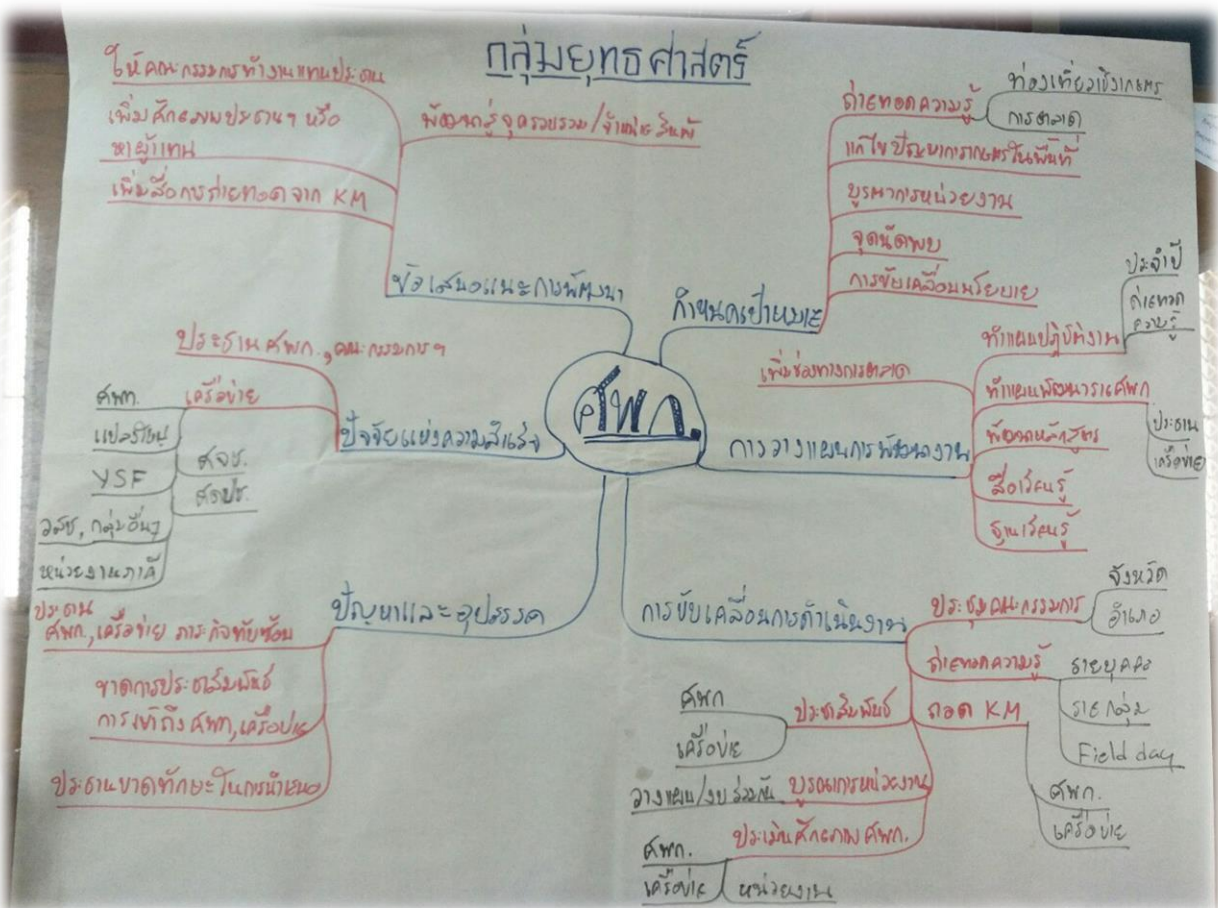 กลุ่มยุทธศาสตร์
ศพก.
กำหนดเป้าหมาย
ถ่ายทอดความรู้
ท่องเที่ยวเชิงเกษตร
การตลาด
แก้ไขปัญหาการเกษตรในพื้นที่
บูรณาการหน่วยงาน
จุดนัดพบ
การขับเคลื่อนนโยบาย
การวางแผนการพัฒนางาน
เพิ่มช่องทางการตลาด
ทำแผนปฏิบัติงาน
ประจำปี
ถ่ายทอด
ความรู้
ทำแผนพัฒนาราย ศพก
ประธาน
เครือข่าย
พัฒนาหลักสูตร
สื่อเรียนรู้
ฐานเรียนรู้
การขับเคลื่อนการดำเนินงาน
ประชุมคณะกรรมการ
จังหวัด
อำเภอ
ถ่ายทอดความรู้
รายบุคคล
รายกลุ่ม
Field day
ถอด KM
ศพก.
เครือข่าย
ประชาสัมพันธ์
ศพก
เครือข่าย
บูรณาการหน่วยงาน
วางแผน/งบร่วมกัน
ประเมินศักยภาพ ศพก.
ศพก.
เครือข่าย
หน่วยงาน
ปัญหาและอุปสรรค
ประธาน
ศพก., เครือข่าย ภาระกิจทับซ้อน
ขาดการประชาสัมพันธ์
การเข้าถึง ศพก, เครือข่าย
ประธานขาดทักษะในการนำเสนอ
ปัจจัยแห่งความสำเร็จ
ประธาน ศพก., คณะกรรมการฯ
เครือข่าย
ศพก.
แปลงใหญ่
YSF
ศจช.
ศดปช.
วสช, กลุ่มอื่นๆ
หน่วยงานภาคี
ข้อเสนอแนะการพัฒนา
พัฒนาสู่จุดรวบรวม/จำหน่ายสินค้า
ให้คณะกรรมการทำงานแทนประธาน
เพิ่มศักยภาพประธานฯ หรือ
หาผู้แทน
เพิ่มสื่อการถ่ายทอดจาก KM